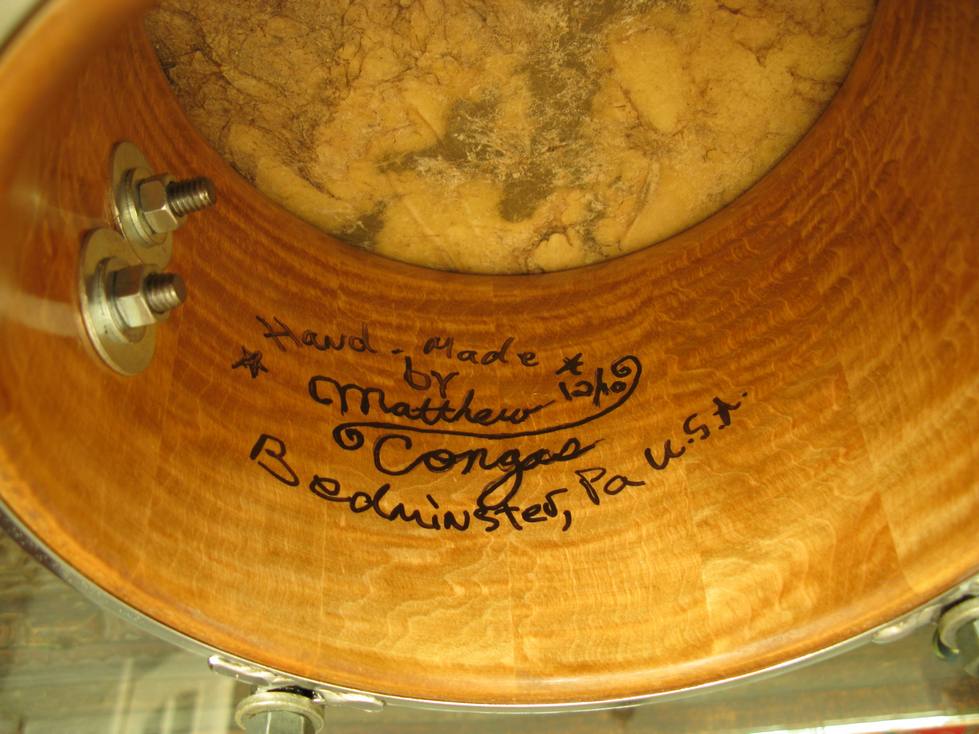 Hand-Made
by
Matthew 12/10
Congas
Bedminster, Pa U.S.A.